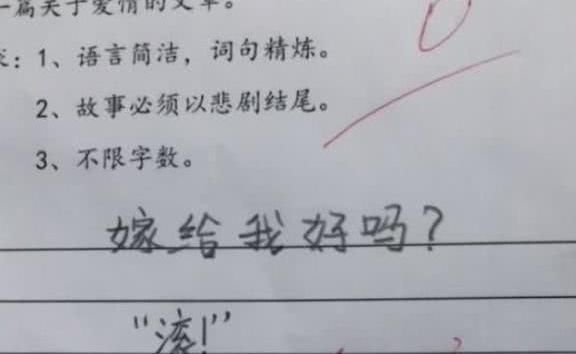 一篇关于爱情的文章。
求：1、语言简洁，词句精炼。
2、故事必须以悲剧结尾。
3、不限字数。
0
嫁给我好吗？
“滚！”